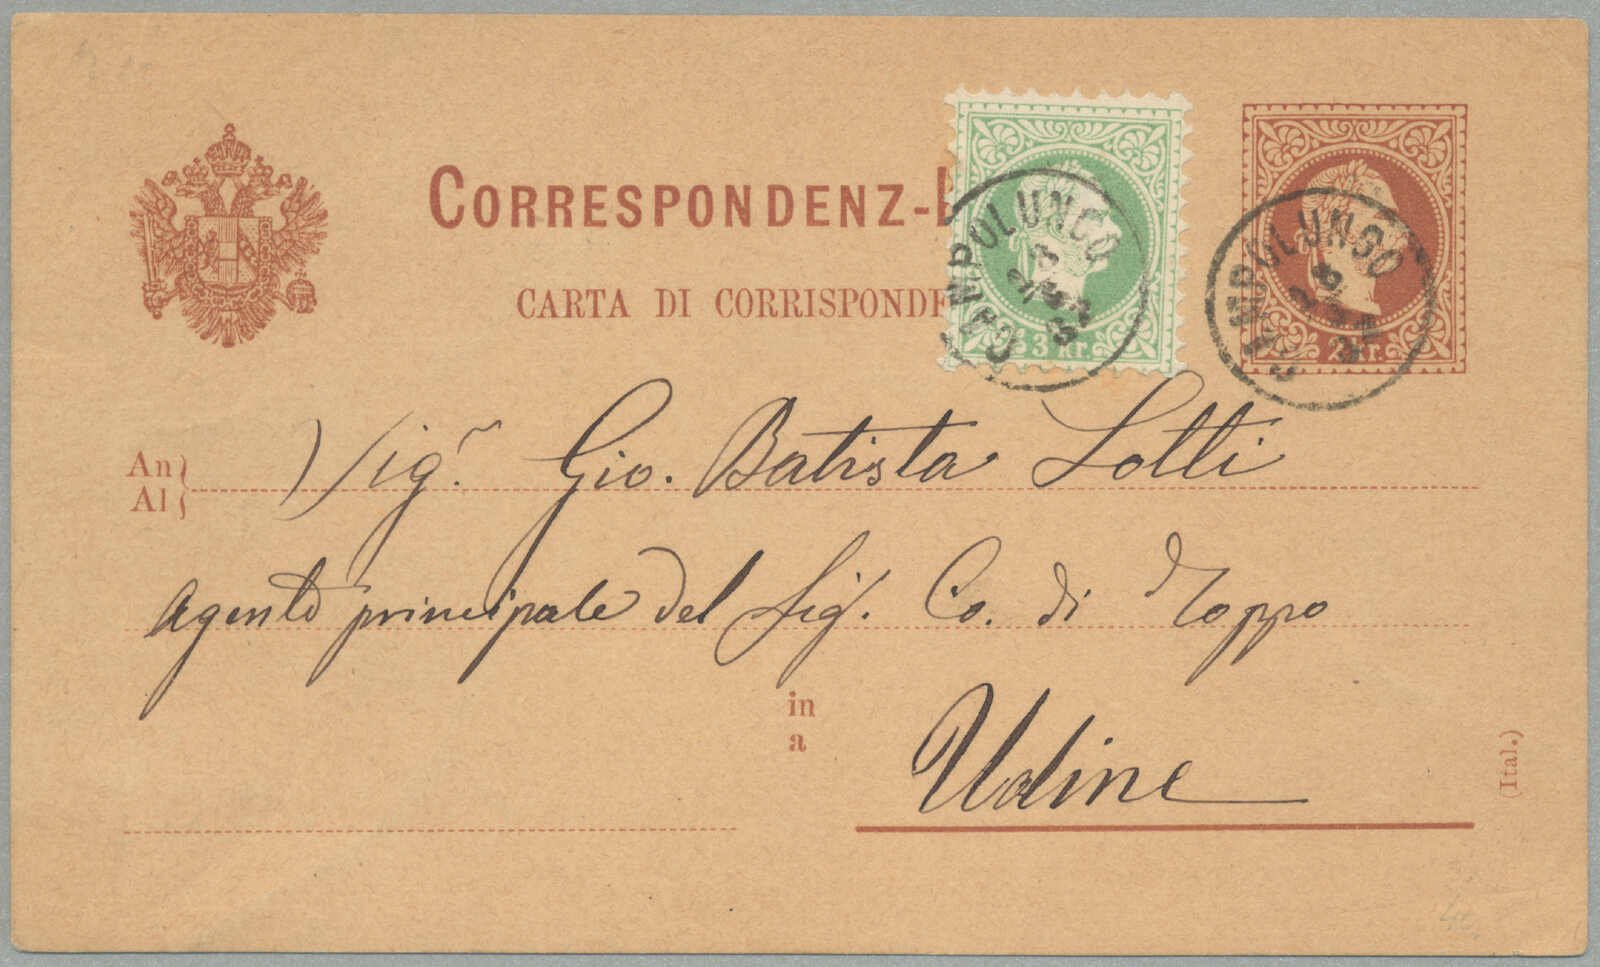 CORRESPONDENZ-
CARTA DI CORRISPONDE
CAMPOLUNGO
3 kr.
CAMPOLUNGO
2 kr.
An
Al
Sigr. Gio. Batista Lotti
Agente principale del Sig. Co. di Toppo
in
a
Udine
(Ital.)